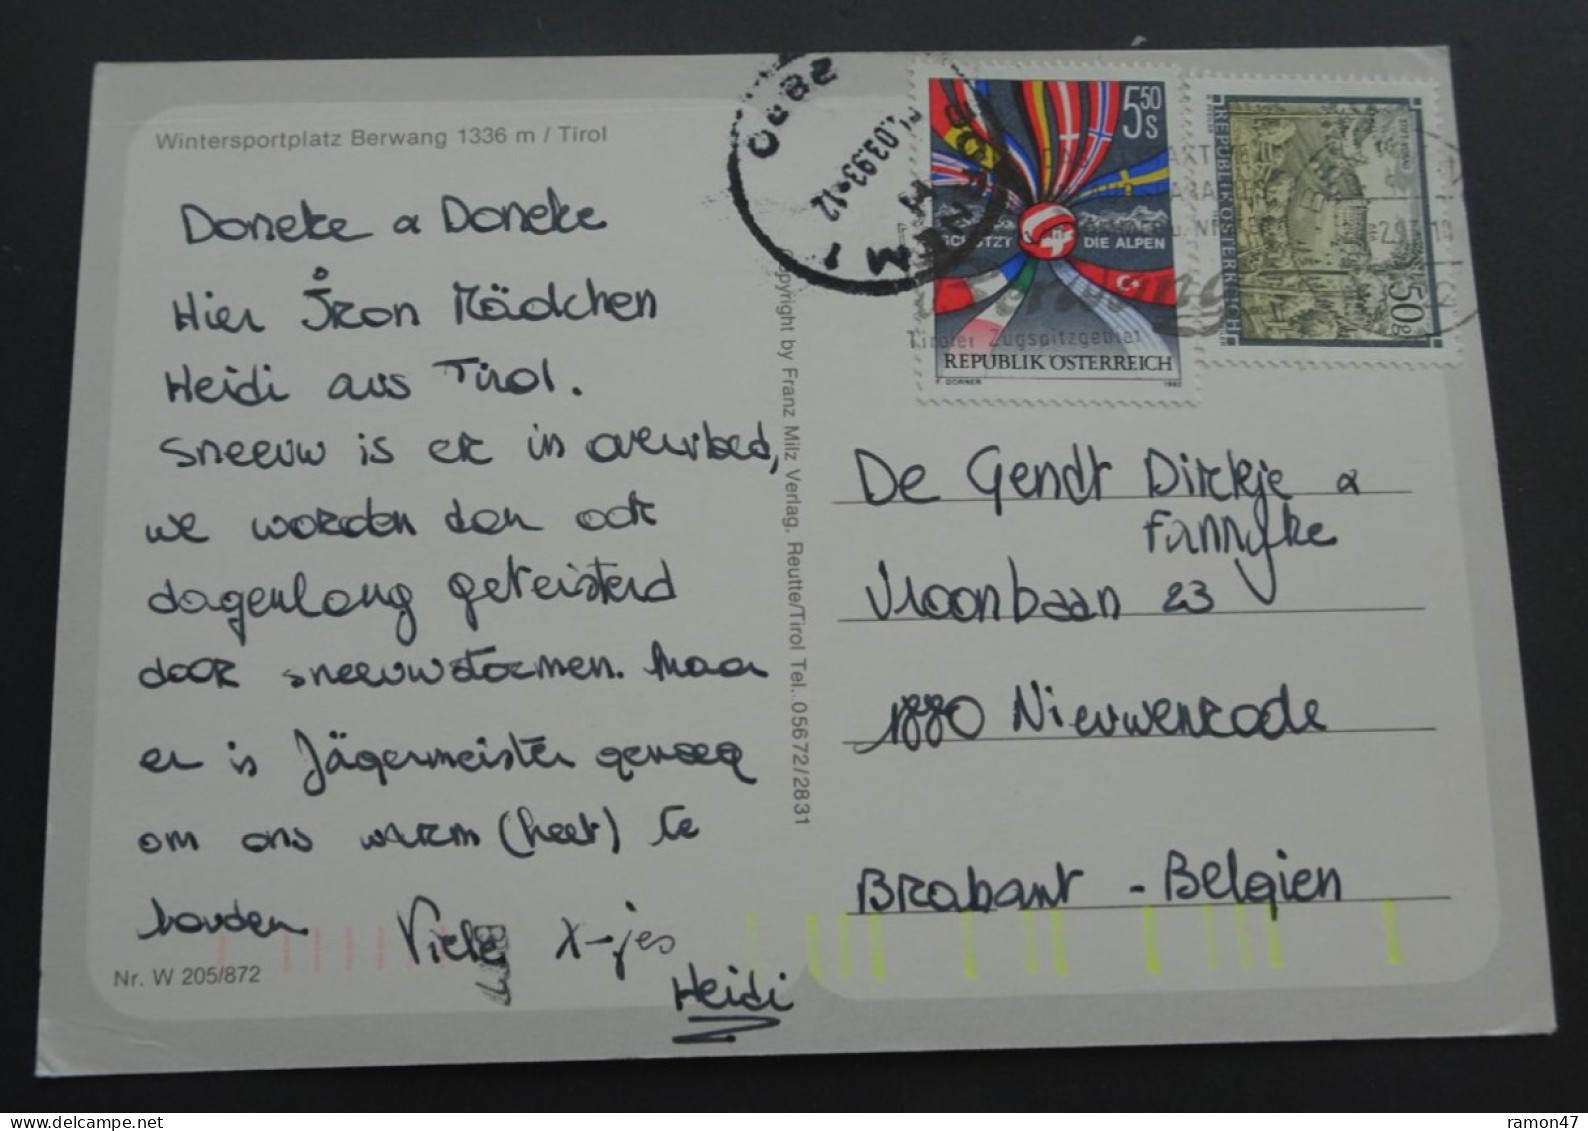 Wintersportplatz Berwang 1336 m / Tirol
Doneke & Doneke
Hier Åron Mädchen
Heidi aus Tirol.
Sneeuw is er in overvloed,
we worden dan ook
dagenlang geteisterd
door sneeuwstormen. Maar
er is Jägermeister genoeg
om ons warm (heet) te
houden. Viele X-jes
Heidi
Nr. W 205/872
Copyright by Franz Milz Verlag, Reutte/Tirol Tel. 05672/2831
5 50 S
SCHÜTZT DIE ALPEN
REPUBLIK ÖSTERREICH
F. DORNER 1992
REPUBLIK ÖSTERREICH
50g
Berwang
Tiroler Zugspitzgebiet
.03.93-12
De Gendt Dirkje &
Fannyke
Vroonbaan 23
1880 Nieuwenrode
Brabant - Belgien
ramon47